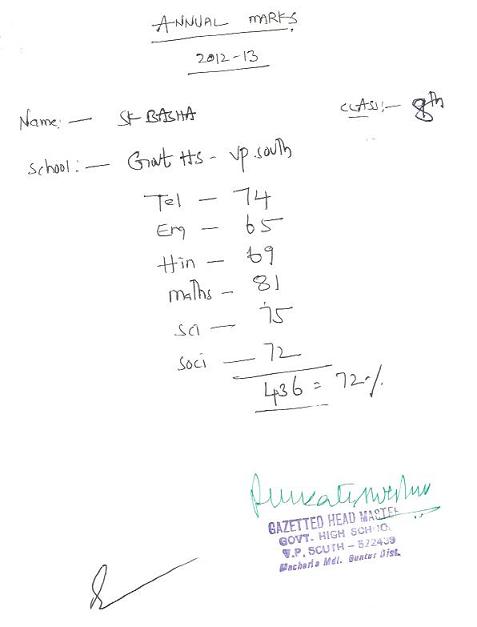 ANNUAL MARKS
2012-13
Name:- SK BASHA CLASS:- 8th
School:- Govt HS - VP.South
Tel - 74
Eng - 65
Hin - 69
Maths - 81
Sci - 75
Soci - 72
436 = 72%
GAZETTED HEAD MASTER
GOVT. HIGH SCHOOL
V.P. SOUTH - 522439
Macharla Mdl. Guntur Dist.